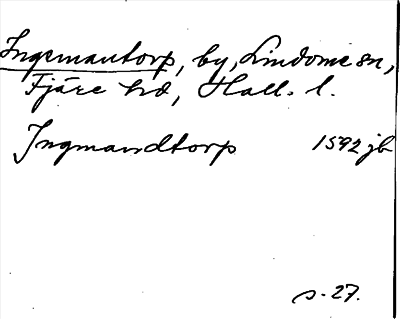 Ingemantorp, by, Lindome sn,
Fjäre hd, Hall. l.
Ingmandtorp 1592 jb
s. 27.